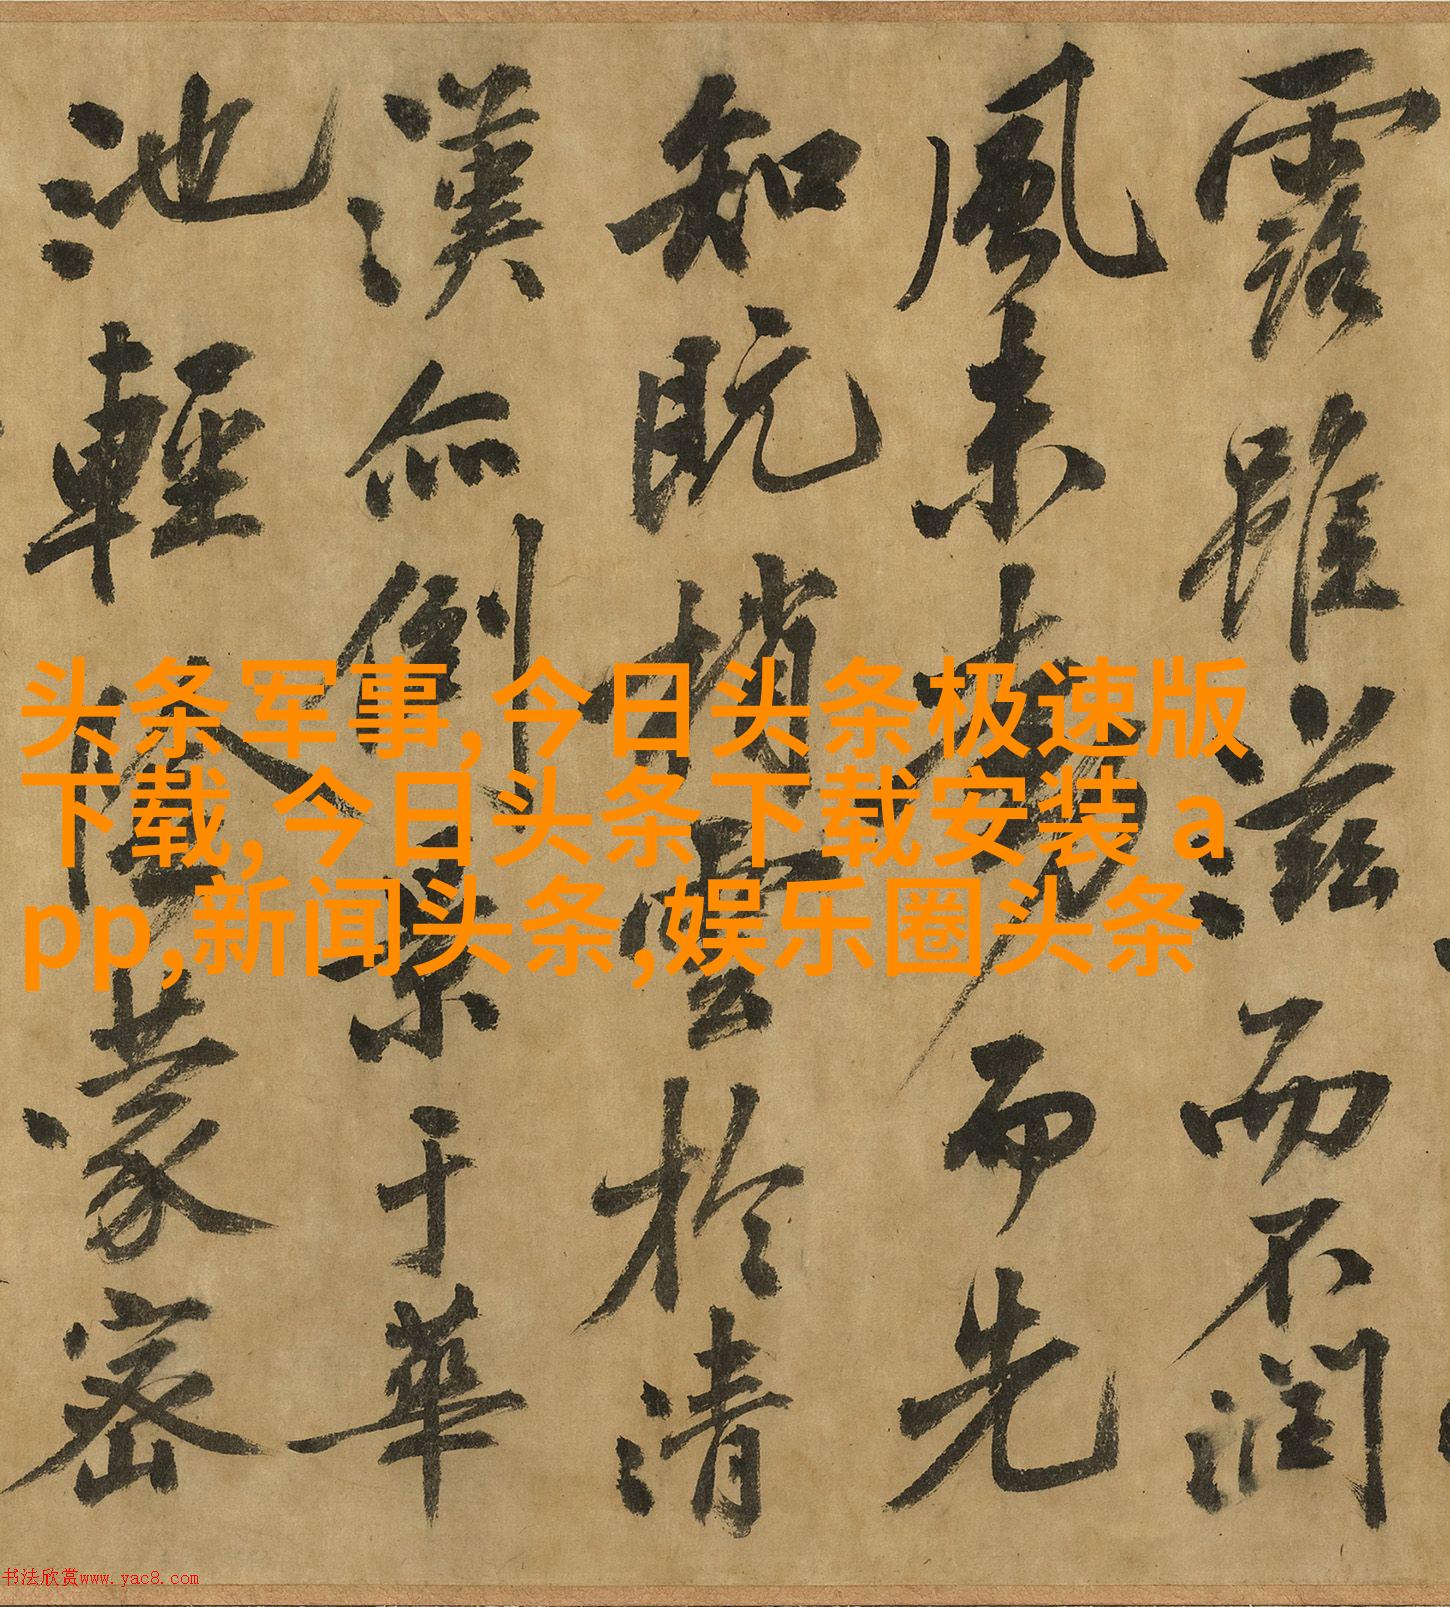 露雖滋而不潤
風未動而先
知既梢雲於清
漢亦倒景于華
池輕陰蒙密
头条军事,今日头条极速版
下载,今日头条下载安装 a
pp,新闻头条,娱乐圈头条
书法欣赏www.yac8.com